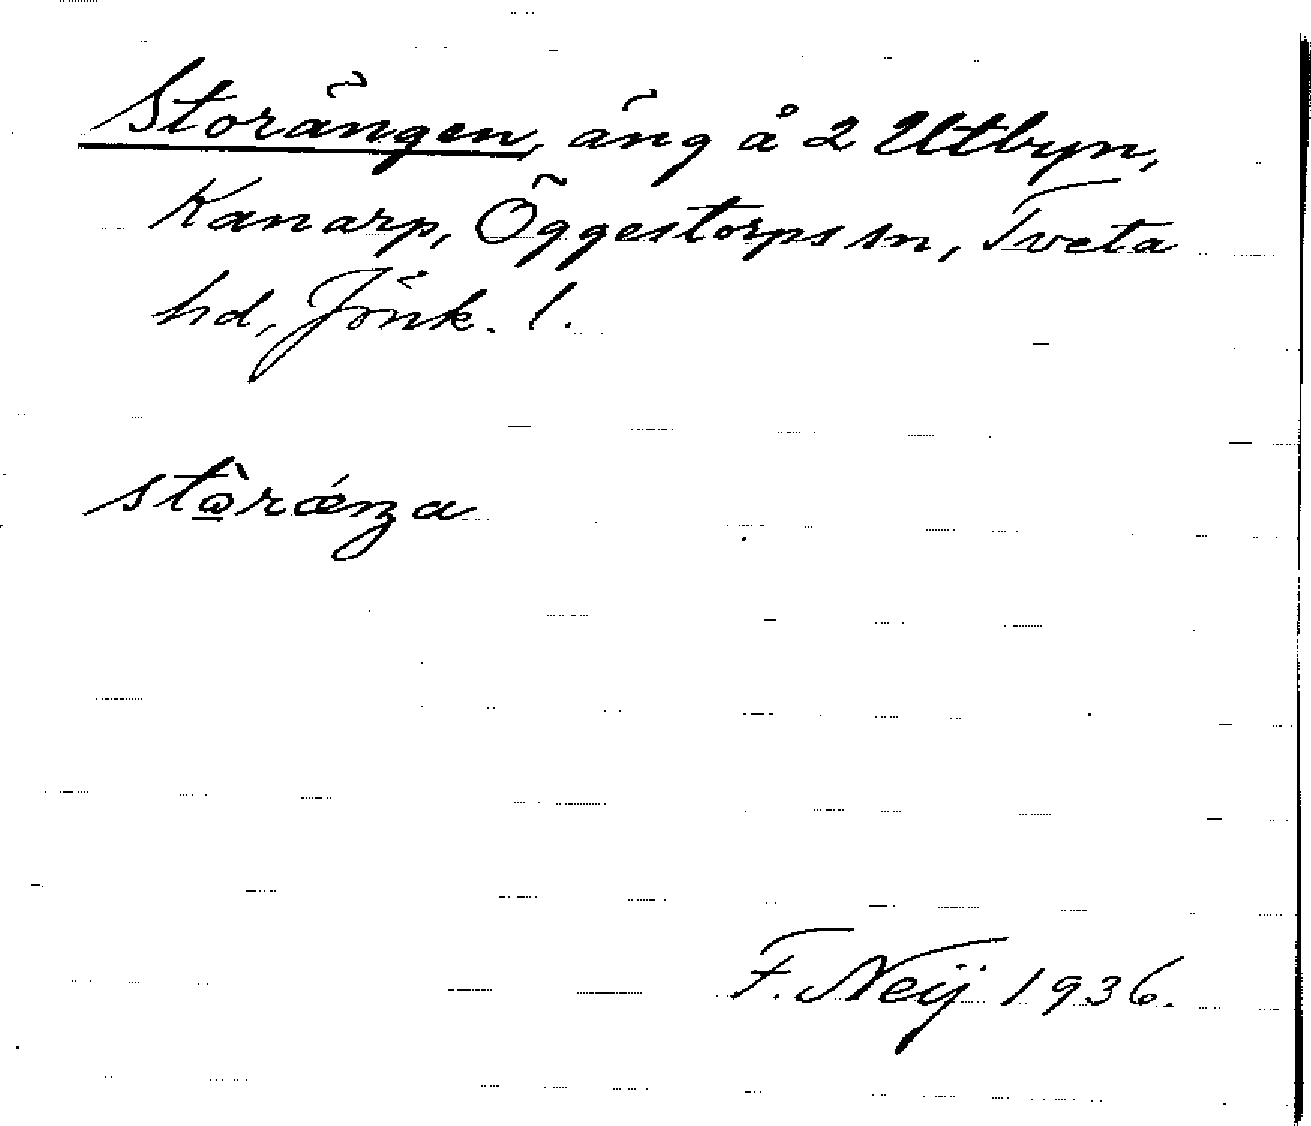 Storängen, äng å 2 Utbyn,
Kanarp, Öggestorps sn, Tveta
hd, Jönk. l.
stòrǽnꞑa
F. Neij 1936.